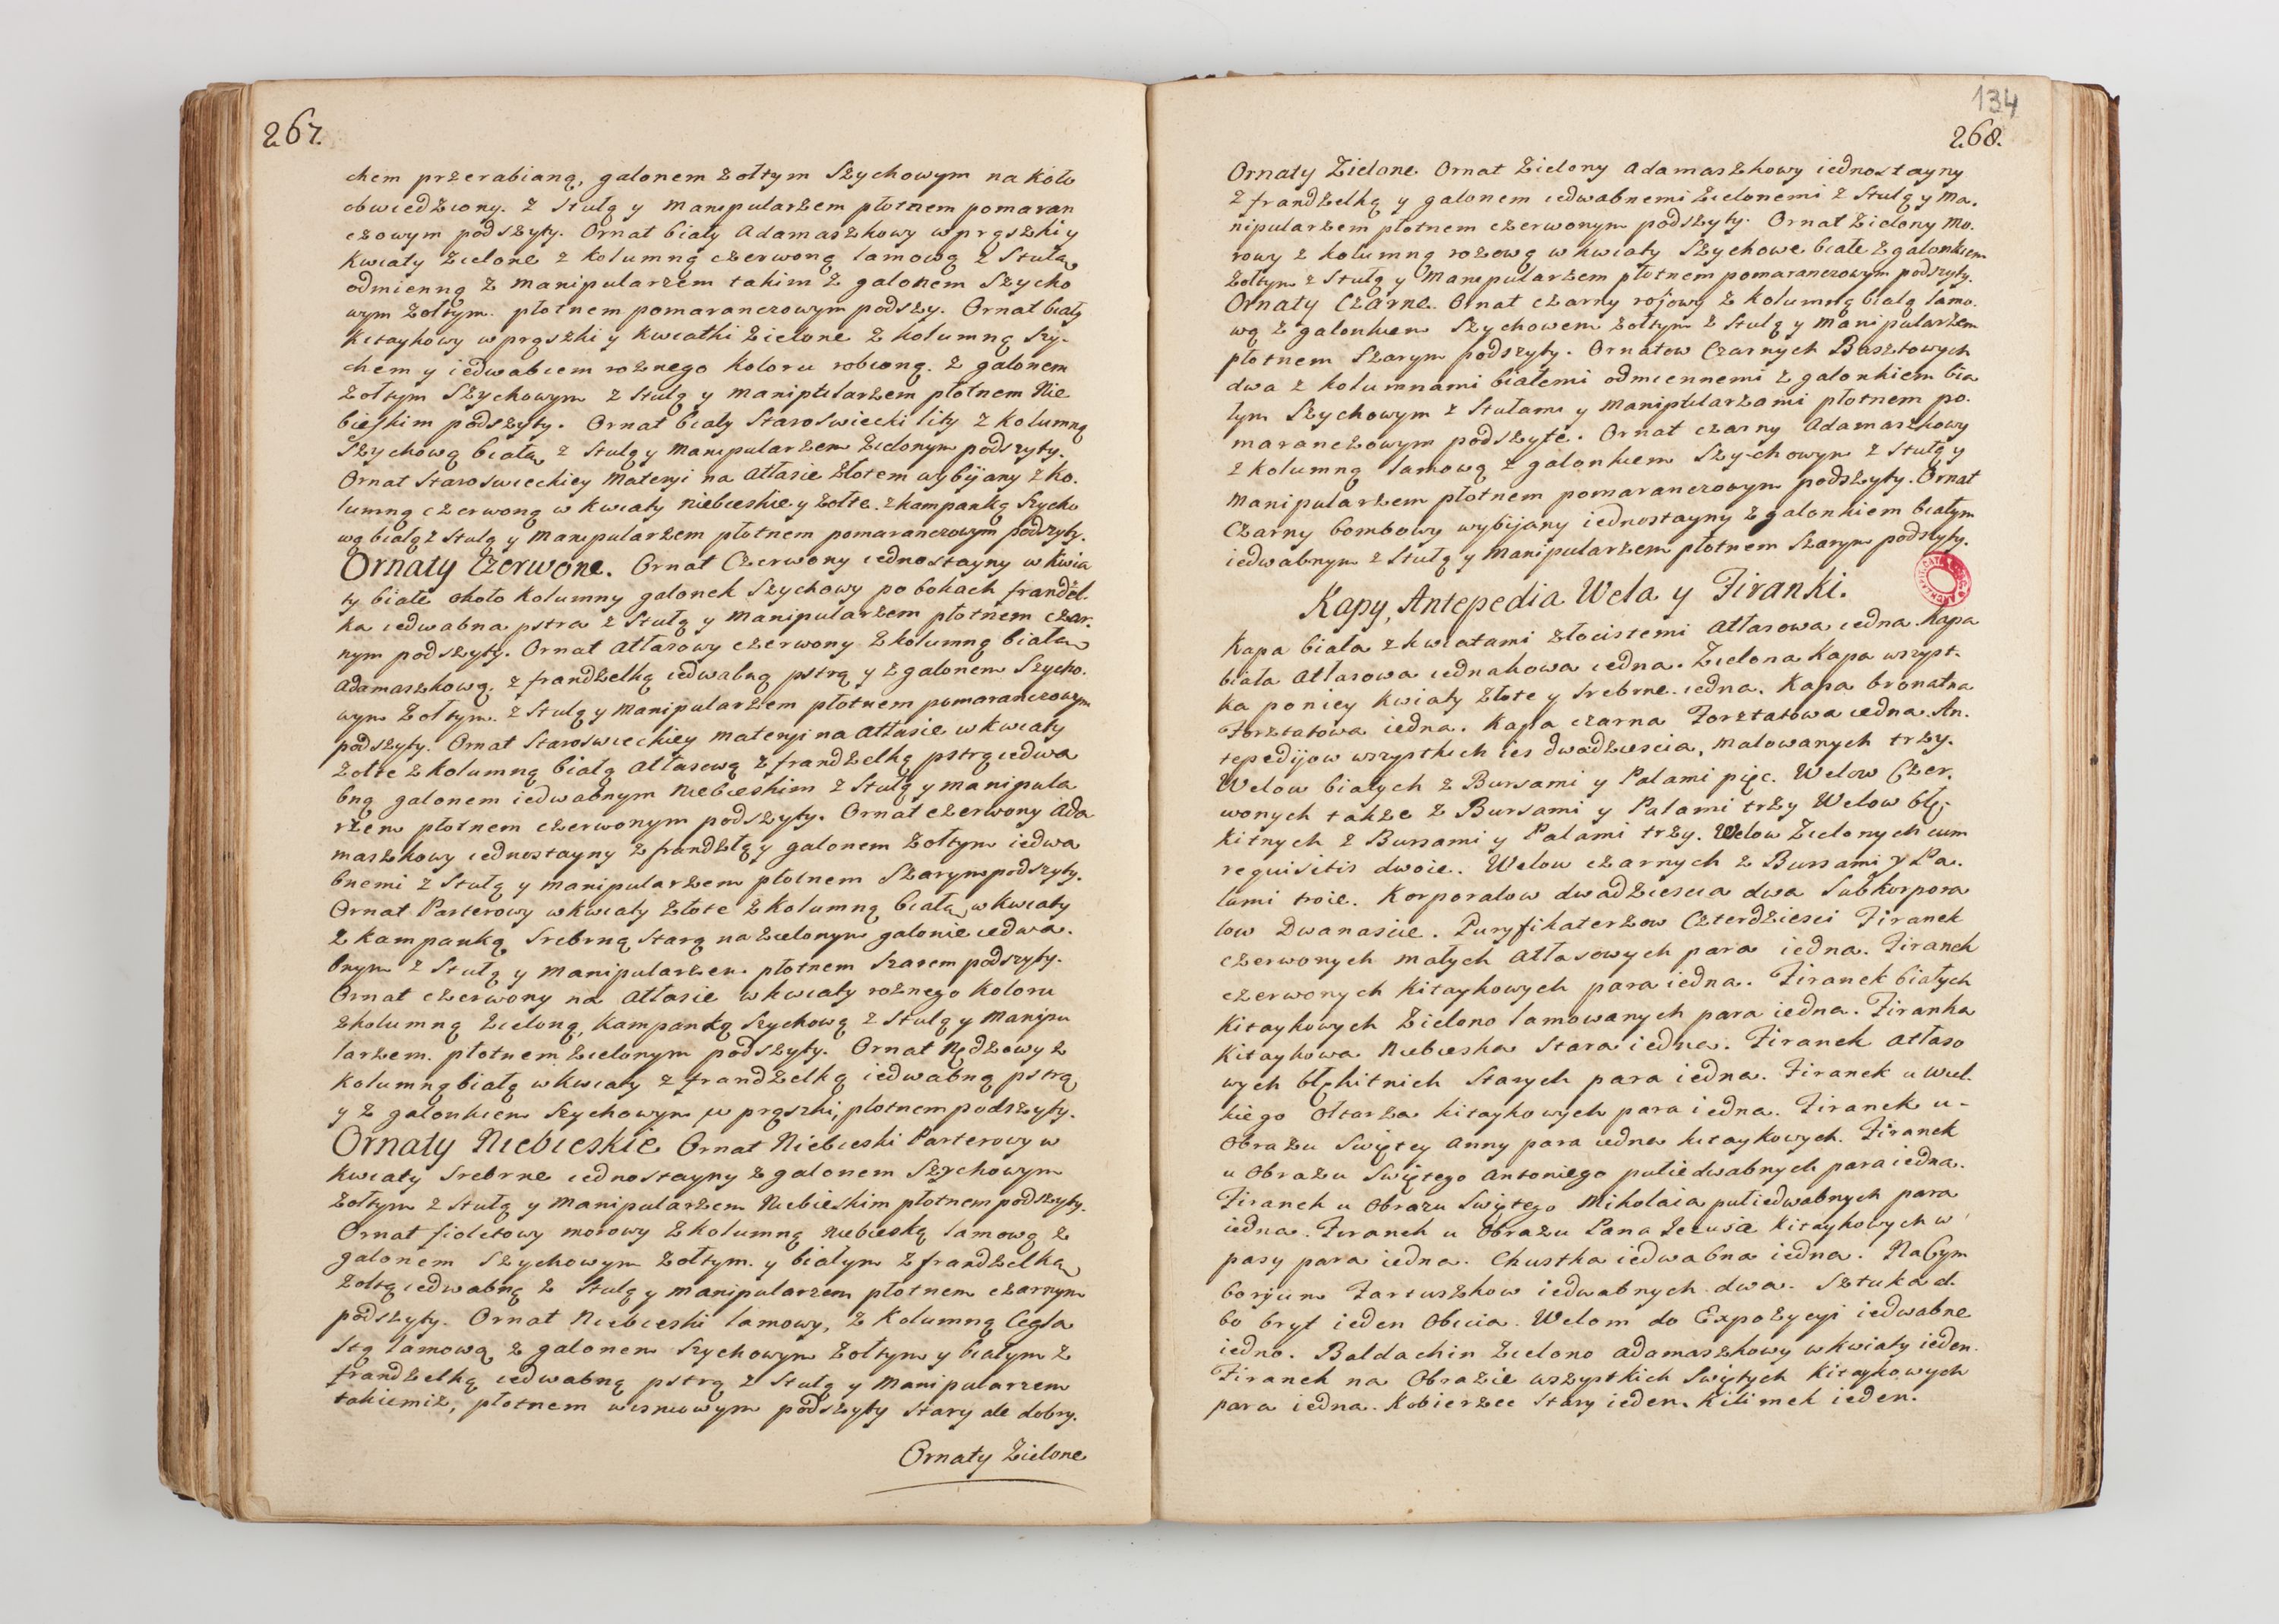 267.
chem przerabianą, galonem żołtym Szychowym na koło
obwiedziony. z Stułą y Manipularzem płotnem pomaran
czowym podszyty. Ornat biały Adamaszkowy w prążki y
kwiaty zielone z kolumną czerwoną lamową z Stułą
odmienną z manipularzem takim z galonem Szycho
wym żołtym. płotnem pomaranczowym podszy. Ornat biały
kitaykowy w prążki y kwiatki zielone z kolumną Szy-
chem y iedwabiem rożnego koloru robioną. z galonem
żołtym Szychowym z Stułą y manipularzem płotnem Nie
bieskim podszyty. Ornat biały Staroswiecki lity z kolumną
Szychową białą z Stułą y Manipularzem zielonym podszyty.
Ornat Staroswieckiey Materyi na Atłasie złotem wybijany z ko.
lumną czerwoną w kwiaty niebieskie y żołte. z kampanką Szycho
wą białą z Stułą y Manipularzem płotnem pomaranczowym podszyty.
Ornaty Czerwone. Ornat Czerwony iednostayny w kwia
ty białe około kolumny galonek Szychowy po bokach frandzel.
ka iedwabna pstra z Stułą y Manipularzem płotnem czar.
nym podszyty. Ornat Atłasowy czerwony z kolumną białą
Adamaszkową. z frandzelką iedwabną pstrą y z galonem Szycho.
wym żołtym. z Stułą y Manipularzem płotnem pomaranczowym
podszyty. Ornat Staroswieckiey materyi na Atłasie w kwiaty
żołte z kolumną białą Atłasową z frandzelką pstrą iedwa
bną galonem iedwabnym Niebieskim z Stułą y manipula
rzem płotnem czerwonym podszyty. Ornat czerwony Ada
maszkowy iednostayny z frandzlą y galonem żołtym iedwa
bnemi z Stułą y manipularzem płotnem Szarym podszyty.
Ornat Parterowy w kwiaty złote z kolumną białą, w kwiaty
z Kampanką Srebrną Starą na zielonym galonie iedwa.
bnym z Stułą y manipularzem płotnem Szarem podszyty.
Ornat czerwony na Atłasie w kwiaty rożnego koloru
z kolumną zieloną, kampanką Szychową z Stułą y Manipu
larzem. płotnem zielonym podszyty. Ornat Rydzowy z
kolumną białą w kwiaty z frandzelką iedwabną pstrą
y z galonkiem Szychowym w prążki, płotnem podszyty.
Ornaty Niebieskie Ornat Niebieski Parterowy w
kwiaty Srebrne iednostayny z galonem Szychowym
żołtym z Stułą y Manipularzem Niebieskim płotnem podszyty.
Ornat fioletowy morowy z kolumną niebieską lamową z
galonem Szychowym żołtym. y białym z frandzelką
żołtą iedwabną z Stułą y manipularzem płotnem czarnym
podszyty. Ornat Niebieski lamowy, z kolumną Cegla
stą lamową z galonem Szychowym żołtym y białym z
frandzelką iedwabną pstrą z Stułą y Manipularzem
takiemiż, płotnem wisniowym podszyty stary ale dobry.
Ornaty Zielone
134
268.
Ornaty Zielone. Ornat zielony Adamaszkowy iednostayny
z frandzelką y galonem iedwabnemi zielonemi z Stułą y Ma.
nipularzem płotnem czerwonym podszyty. Ornat zielony Mo.
rowy z kolumną rożową w kwiaty Szychowe białe z galonkiem
żołtym z Stułą y Manipularzem płotnem pomaranczowym podszyty.
Ornaty Czarne. Ornat czarny ryjowy z kolumną białą lamo.
wą z galonkiem Szychowem żołtym z Stułą y Manipularzem
płotnem Szarym podszyty. Ornatow Czarnych Basztowych
dwa z kolumnami białemi odmiennemi z galonkiem bia
łym Szychowym z Stułami y Manipularzami płotnem po.
maranczowym podszyte. Ornat czarny Adamaszkowy
z kolumną lamową z galonkiem Szychowym z Stułą y
manipularzem płotnem pomaranczowym podszyty. Ornat
Czarny bombowy wybijany iednostayny z galonkiem białym
iedwabnym z Stułą y manipularzem płotnem Szarym podszyty.
Kapy, Antepedia Wela y Firanki.
Kapa biała z kwiatami złocistemi Atłasowa iedna. Kapa
biała Atłasowa iednakowa iedna. Zielona Kapa wszyst.
ka po niey kwiaty złote y srebrne. iedna. Kapa bronatna
Forsztatowa iedna. Kapa czarna Forsztatowa iedna. An.
tepedijow wszystkich ies dwadziescia, malowanych trzy.
Welow białych z Bursami y Palami pięc. Welow Czer.
wonych także z Bursami y Palami trzy Welow błę-
kitnych z Bursami y Palami trzy. Welow Zielonych cum
requisitis dwoie. Welow czarnych z Bursami y Pa.
lami troie. Korporałow dwadziescia dwa Subkorpora
łow Dwanascie. Puryfikaterzow Czterdziesci Firanek
czerwonych małych Atłasowych para iedna. Firanek
czerwonych kitaykowych para iedna. Firanek białych
Kitaykowych Zielono lamowanych para iedna. Firanka
Kitaykowa Niebieska Stara iedna. Firanek Atłaso
wych błękitnich Starych para iedna. Firanek u wiel.
kiego Ołtarza kitaykowych para iedna. Firanek u-
Obrazu Swiętey Anny para iedna kitaykowych. Firanek
u Obrazu Swiętego Antoniego puliedwabnych para iedna.
Firanek u Obrazu Swiętego Mikołaia puliedwabnych para
iedna. Firanek u Obrazu Pana Jezusa Kitaykowych w
pasy para iedna. Chustka iedwabna iedna. Na Cym
borijum Fartuszkow iedwabnych dwa. Sztuka d.
bo bryt ieden Obicia. Welom do Expozycyi iedwabne
iedno. Baldachin Zielono Adamaszkowy w kwiaty ieden.
Firanek na Obrazie wszystkich Swiętych Kitaykowych
para iedna. Kobierzec Stary ieden. Kilimek ieden.